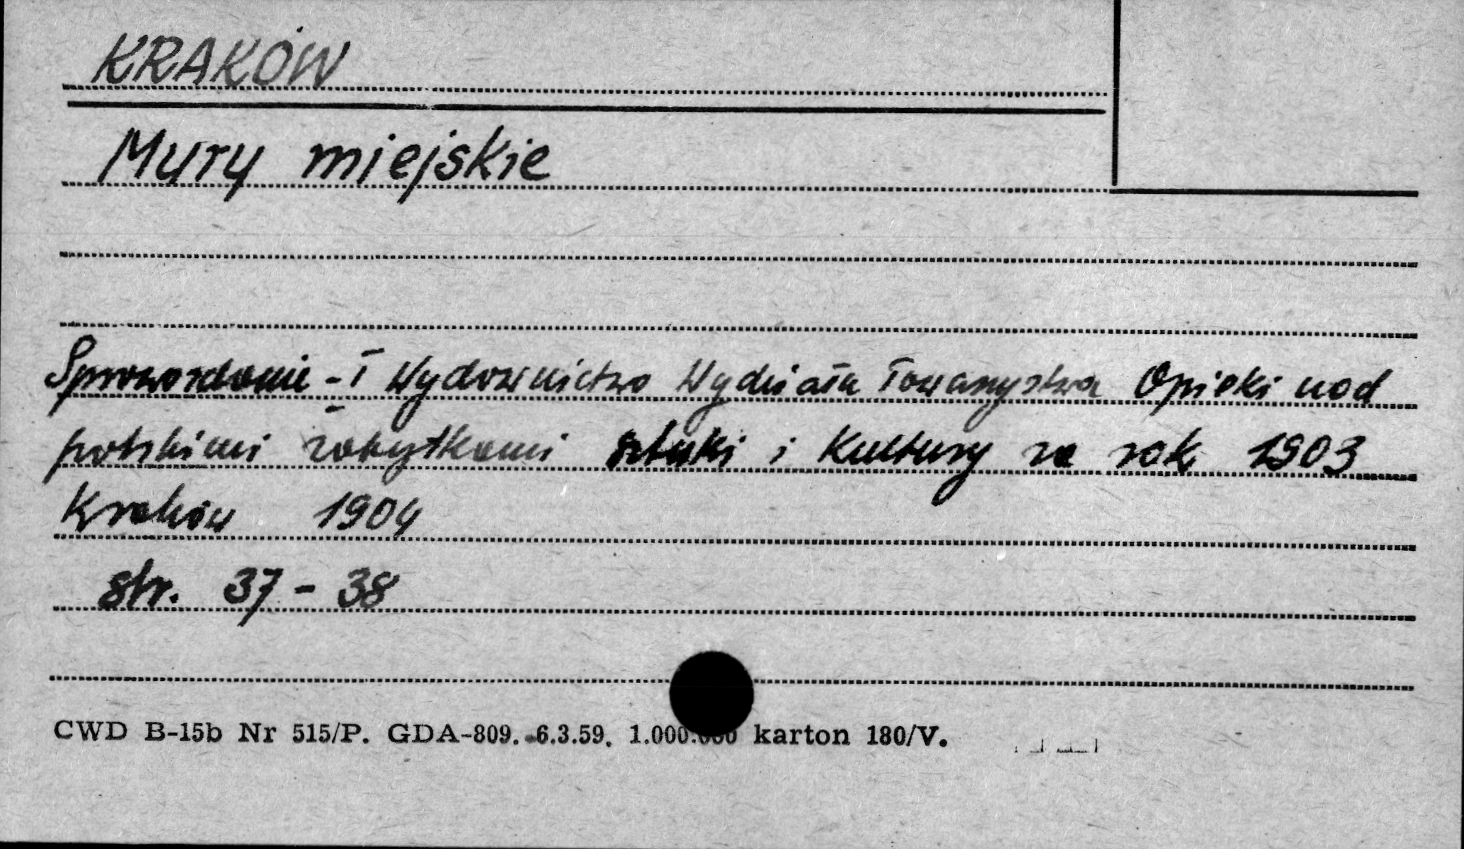 KRAKÓW
Mury miejskie
Sprawozdanie - I Wydawnictwo Wydziału Towarzystwa Opieki nad
polskimi zabytkami sztuki i Kultury za rok 1903
Kraków 1904
str. 37 - 38
CWD B-15b Nr 515/P. GDA-809. 6.3.59. 1.000.000 karton 180/V.